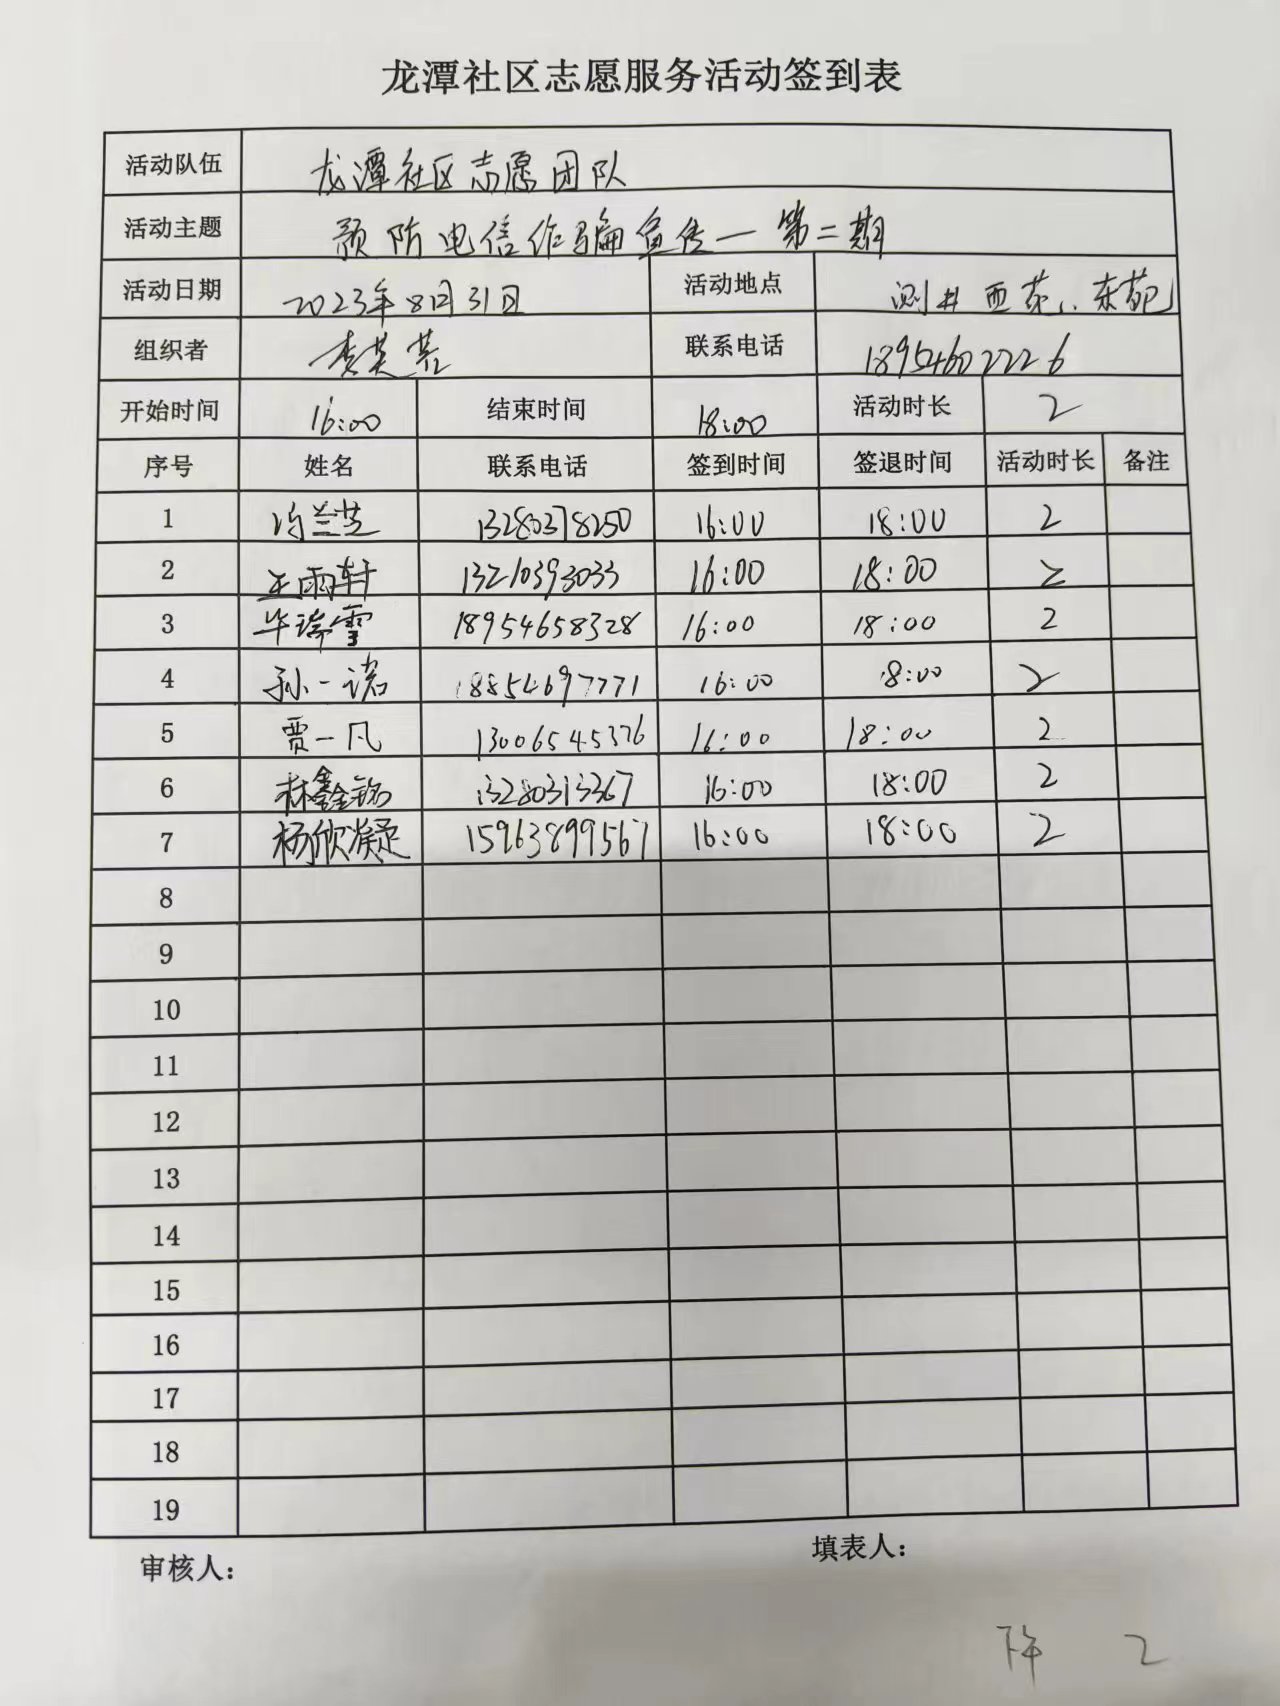 龙潭社区志愿服务活动签到表
活动队伍 龙潭社区志愿团队
活动主题 预防电信诈骗宣传一第二期
活动日期 2023年8月31日 活动地点 测井西苑、东苑
组织者 联系电话 18954602226
开始时间 16:00 结束时间 18:00 活动时长 2
序号 姓名 联系电话 签到时间 签退时间 活动时长 备注
1 冯兰芝 13280378250 16:00 18:00 2
2 王雨轩 13210393033 16:00 18:00 2
3 毕瑞雪 18954658328 16:00 18:00 2
4 孙一诺 18854697771 16:00 18:00 2
5 贾一凡 13006545376 16:00 18:00 2
6 林鑫铭 13280313367 16:00 18:00 2
7 杨欣凝 15963899567 16:00 18:00 2
8
9
10
11
12
13
14
15
16
17
18
19
审核人： 填表人：
下午 2